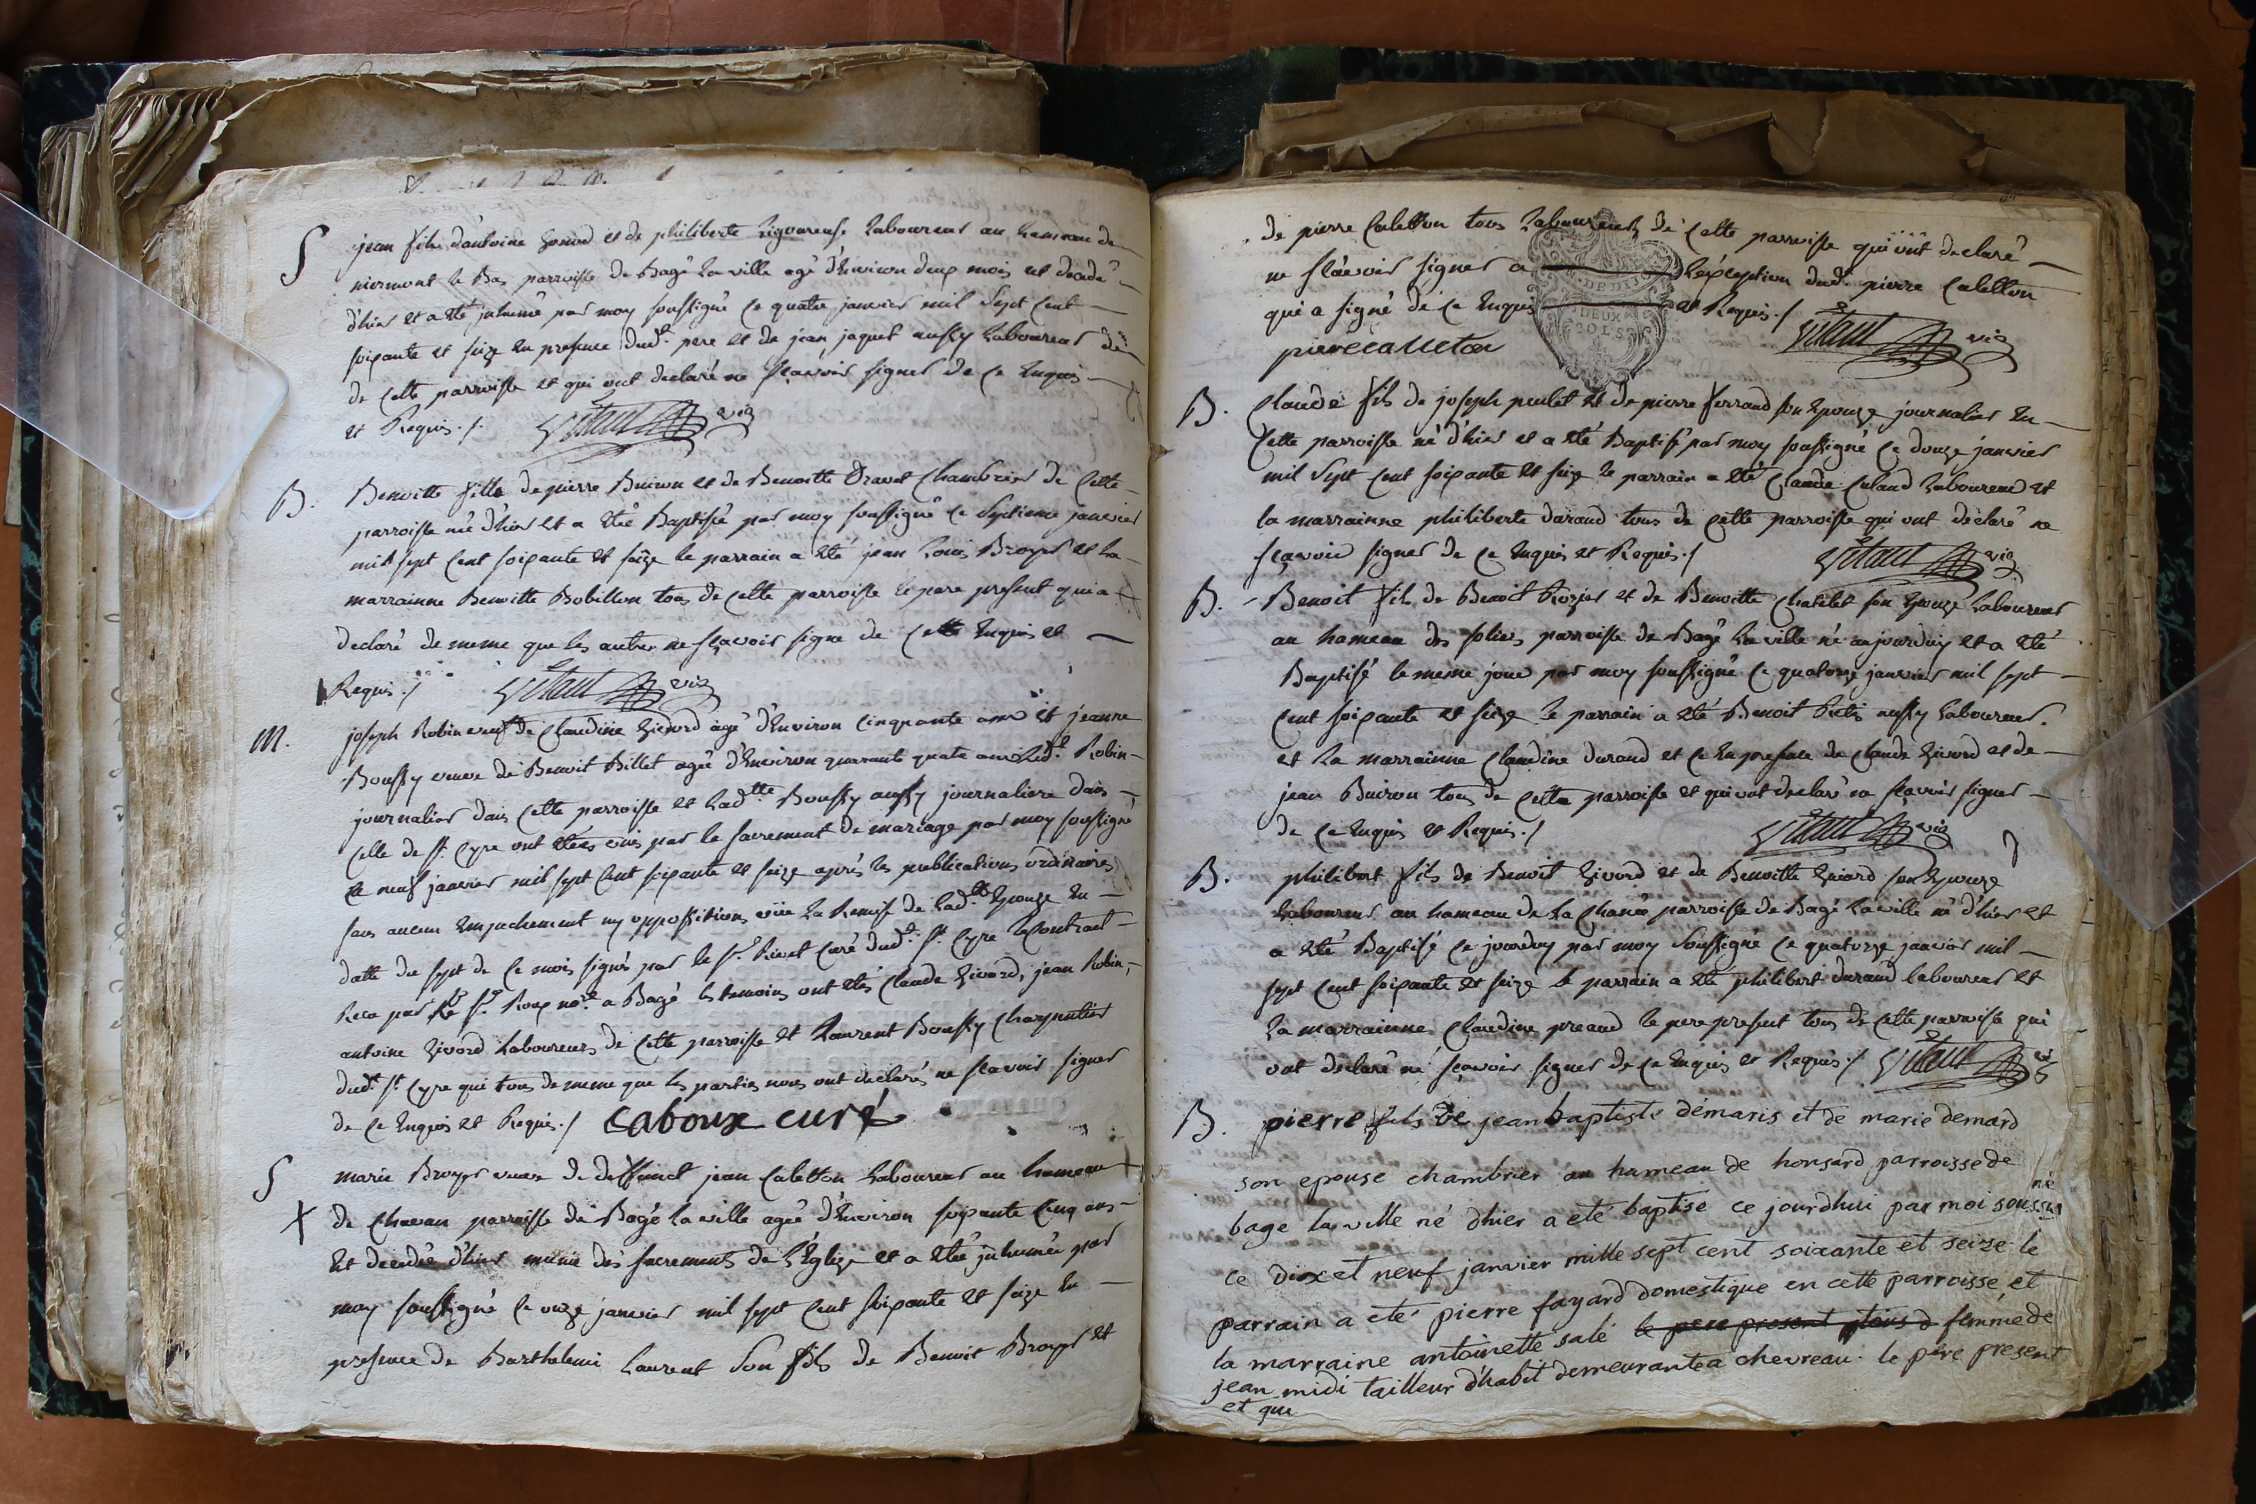 S jean fils d'antoine Gonod et de philiberte Rigoureuse laboureur au hameau de
niermont le Bas parroisse de Bagé la ville agé d'Environ deux mois est decedé
d'hier et a eté jnhumé par moy soussigné ce quatre janvier mil sept cent
soixante et seize en presence dud.t pere et de jean jaquet aussy laboureur
de cette parroisse et qui ont declaré ne sçavoir signer de ce Enquis
et Requis ./. vitaut vic
B. Benoitte fille de pierre Buiron et de Benoitte Dravet Chambrier de Cette
parroisse né d'hier et a eté Baptisée par moy soussigné ce septieme janvier
mil sept cent soixante et seize le parrain a eté jean Louis Broyer et la
marrainne Benoitte Bobillon tous de cette parroisse le pere present qui a
declaré de meme que les autres ne sçavoir signe de cette Enquis et
Requis ./ vitaut vic
M. joseph Robin veuf de Claudine Givord agé d'Environ Cinquante ans et jeanne
Boussy veuve de Benoit Billet agée d'Environ quarante quatre ans led.t Robin
journalier dans cette parroisse et lad.tte Boussy aussy journaliere dans
celle de st. Cyre ont etées unis par le sacrement de mariage par moy soussigné
ce neuf janvier mil sept cent soixante et seize aprés les publications ordinaires
sans aucun Empechement ny oppositions vüe la Remise de lad.tte Epouze en
datte du sept de ce mois signés par le sr. Rivet Curé dud.t st. Cyre le Contract
Recu par le sr. Roux nore a Bagé les temoins ont etés Claude Givord, jean Robin,
antoine Givord laboureurs de cette parroisse et laurent Boussy Charpentier
dud.t st. Cyre qui tous de meme que les parties nous ont declarés ne scavoir signer
de ce Enquis et Requis ./ caboux curé
S marie Broyer veuve de deffunct jean Caletton laboureur au hameau
X de Chavan parroisse de Bagé la ville agée d'Environ soixante Cinq ans
Et decedée d'hier munie des sacrements de l'Eglize et a etée jnhumée par
moy soussigné ce onze janvier mil sept cent soixante et seize en
presence de Barthelemi laurent son fils de Benoit Broyer et
de pierre Caletton tous laboureurs de cette parroisse qui ont declaré
ne sçavoir signer a l'exception dud.t pierre Caletton
qui a signé de ce Enquis et Requis ./
DEUX SOLS
pierrecalleton vitaut vic
B. Claude fils de joseph peulet et de pierre ferrand son Epouze journalier en
Cette parroisse né d'hier et a eté Baptisé par moy soussigné ce douze janvier
mil sept cent soixante et seize le parrain a eté Claude Caland laboureur et
la marrainne philiberte durand tous de cette parroisse qui ont declaré ne
sçavoir signer de ce Enquis et Requis ./ vitaut vic
B. Benoit fils de Benoit Rozier et de Benoitte Chatelet son Epouze laboureur
au hameau des solies parroisse de Bagé la ville né aujourduy et a eté
Baptisé le meme jour par moy soussigné ce quatorze janvier mil sept
cent soixante et seize le parrain a eté Benoit Petit aussy laboureur.
et la marrainne Claudine durand et ce en presence de Claude Givord et de
jean Buiron tous de cette parroisse et qui ont declaré ne scavoir signer
de ce Enquis et Requis ./ vitaut vic
B. philibert fils de Benoit Givord et de Benoitte Guiard son Epouze
laboureur au hameau de la Chanée parroisse de Bagé la ville né d'hier et
a eté Baptisé ce jourduy par moy soussigné ce quatorze janvier mil
sept cent soixante et seize le parrain a eté philibert durand laboureur et
la marrainne Claudine preaud le pere present tous de cette parroisse qui
ont declaré ne sçavoir signer de ce Enquis et Requis ./ vitaut vic
B. pierre fils de jean baptiste démaris et de marie demard
son epouse chambrier au hameau de honsard parroisse de
bage la ville né d'hier a eté baptisé ce jourdhui par moi soussigné
ce dix et neuf janvier mille sept cent soixante et seize le
parrain a eté pierre fayard domestique en cette parroisse et
la marraine antoinette salé le pere present tous d femme de
jean midi tailleur d'habit demeurante a chevreau. le père present
et qui